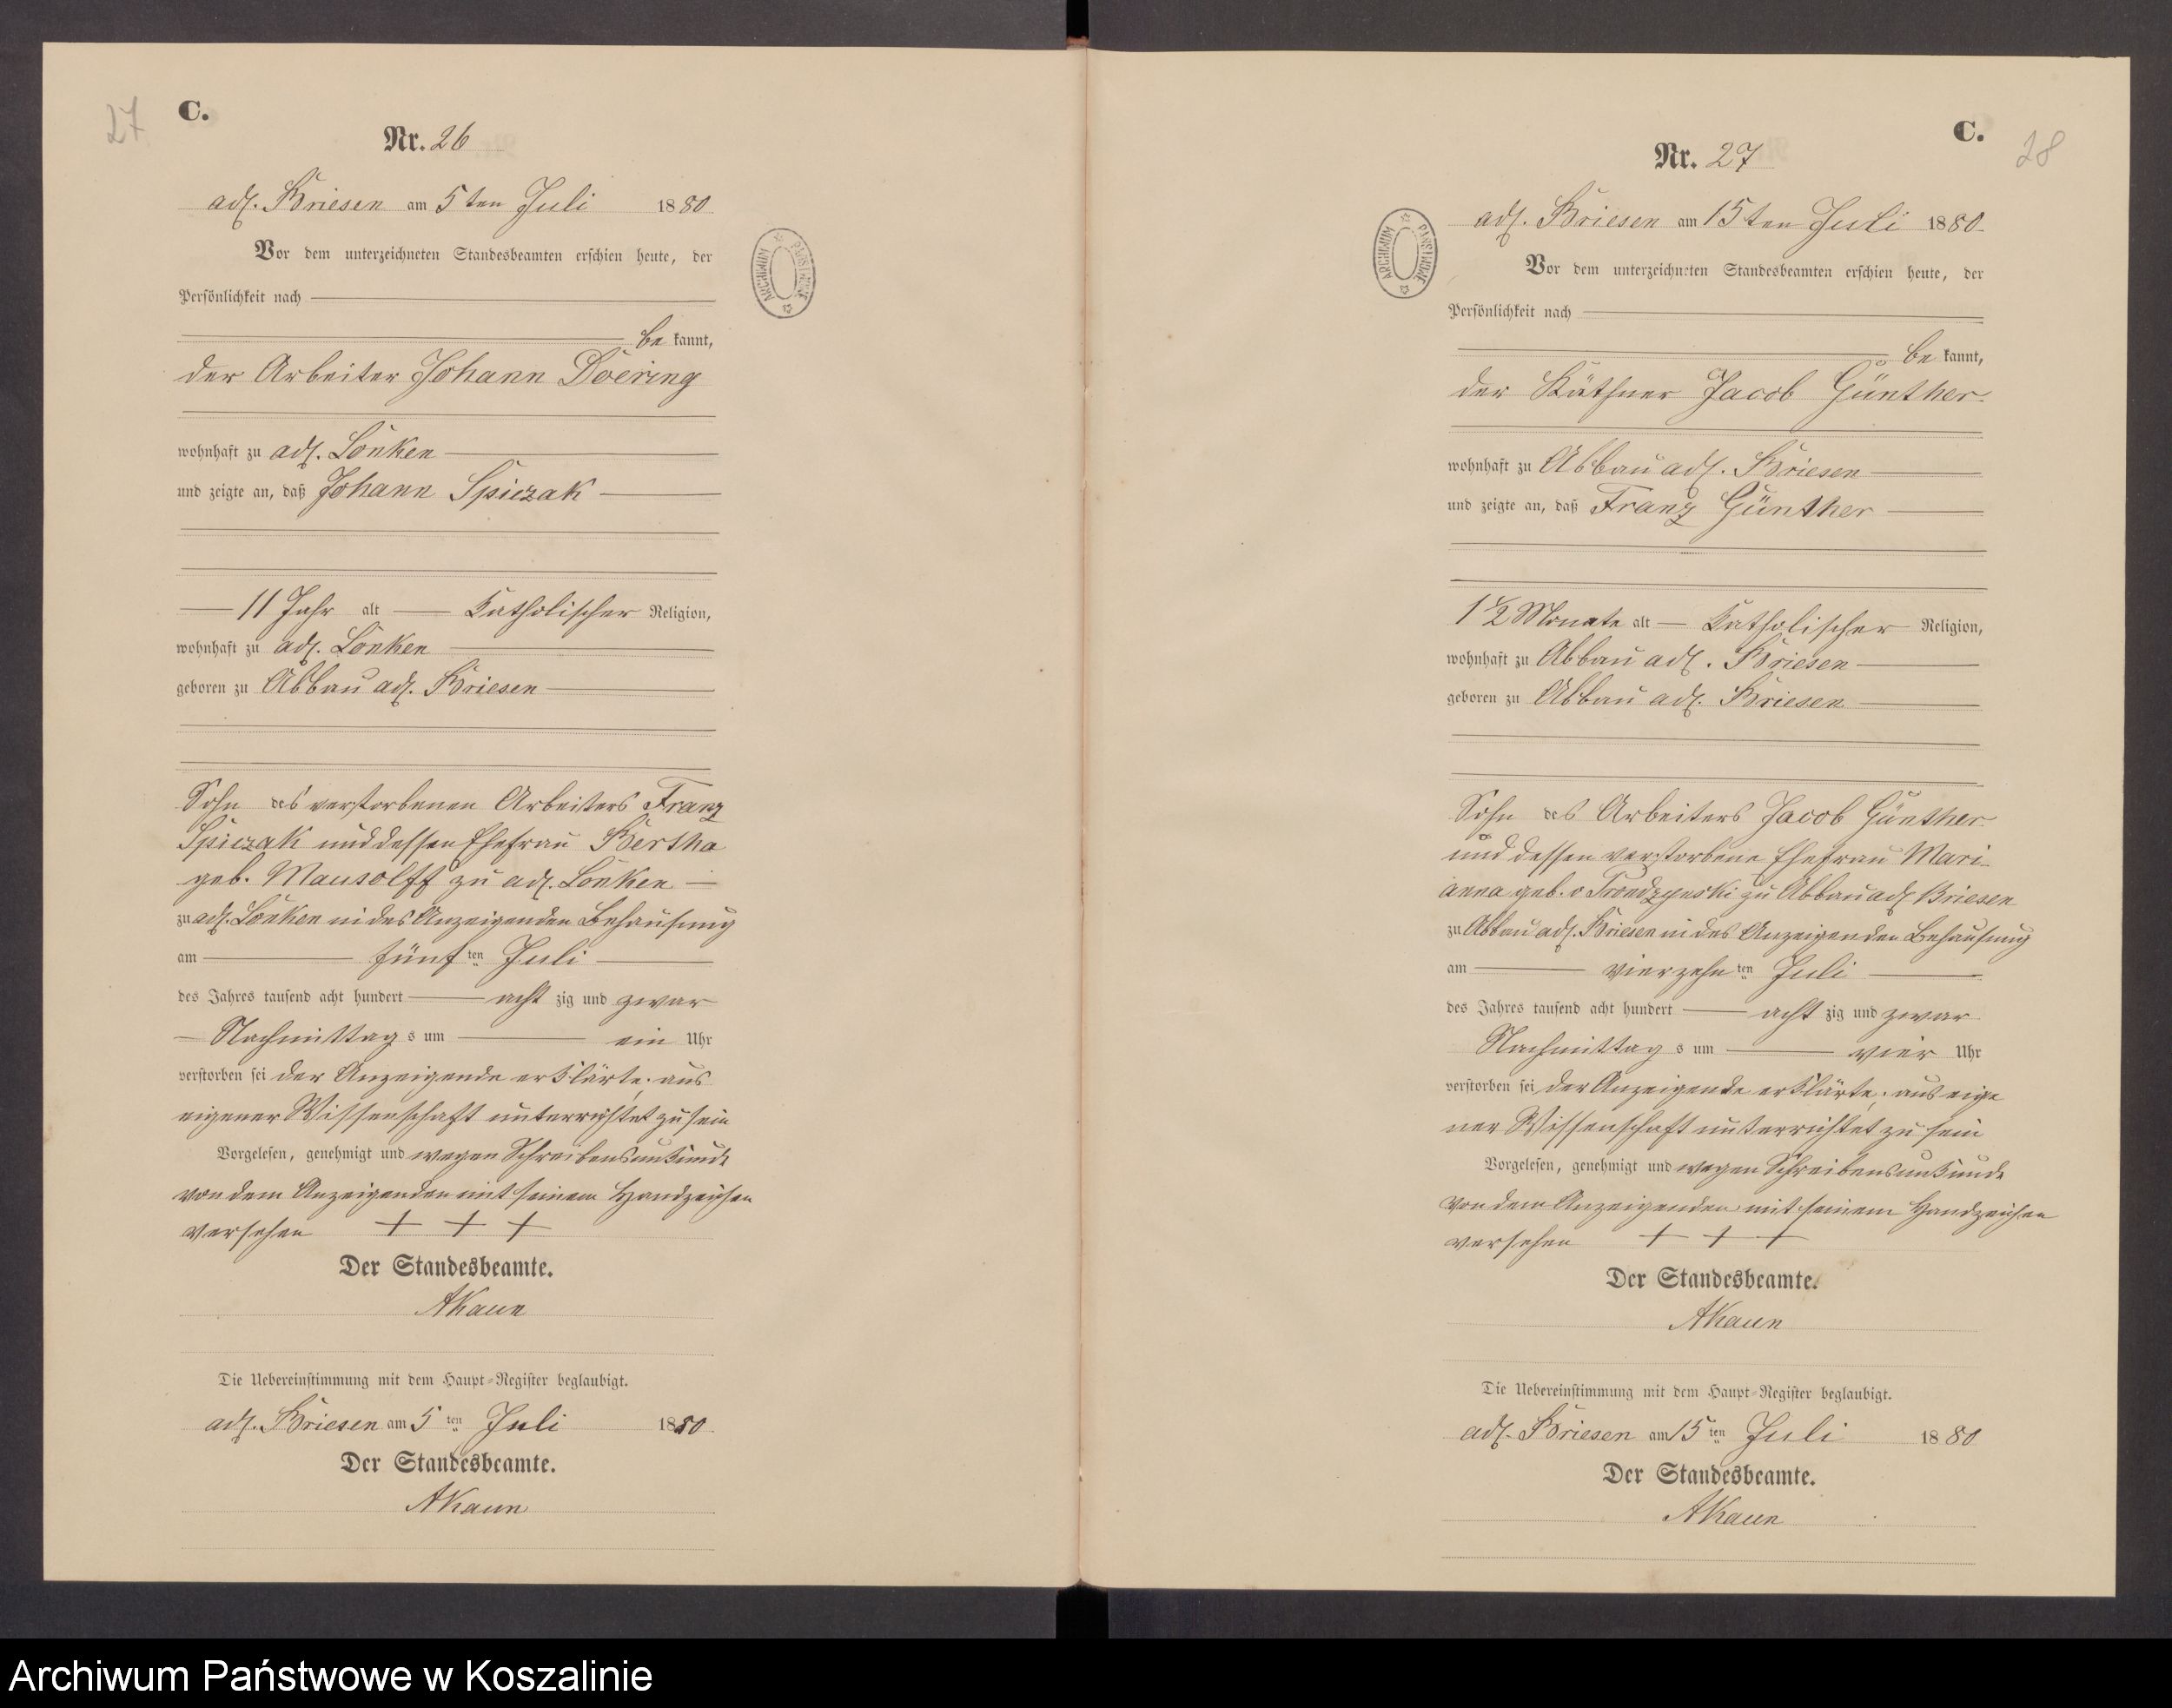 27
C.
Nr. 26
adl. Briesen am 5ten Juli 1880
Vor dem unterzeichneten Standesbeamten erschien heute, der
Persönlichkeit nach
be kannt,
der Arbeiter Johann Doering
wohnhaft zu adl. Lonken
und zeigte an, daß Johann Spiczak
11 Jahr alt Katholischer Religion,
wohnhaft zu adl. Lonken
geboren zu Abbau adl. Briesen
Sohn des verstorbenen Arbeiters Franz
Spiczak und dessen Ehefrau Bertha
geb. Mausolff zu adl. Lonken
zu adl. Lonken in des Anzeigenden Behausung
am fünften Juli
des Jahres tausend acht hundert acht zig und zwar
Nachmittag s um ein Uhr
verstorben sei der Anzeigende erklärte: aus
eigener Wissenschaft unterrichtet zu sein
Vorgelesen, genehmigt und wegen Schreibensunkunde
von dem Anzeigenden mit seinem Handzeichen
versehen + + +
Der Standesbeamte.
AKaun
Die Uebereinstimmung mit dem Haupt-Register beglaubigt.
adl. Briesen am 5 ten Juli 1880
Der Standesbeamte.
AKaun
ARCHIWUM PAŃSTWOWE
C.
28
Nr. 27
adl. Briesen am 15ten Juli 1880
Vor dem unterzeichneten Standesbeamten erschien heute, der
Persönlichkeit nach
be kannt,
der Käthner Jacob Günther
wohnhaft zu Abbau adl. Briesen
und zeigte an, daß Franz Günther
1 1/2 Monate alt Katholischer Religion,
wohnhaft zu Abbau adl. Briesen
geboren zu Abbau adl. Briesen
Sohn des Arbeiters Jacob Günther
und dessen verstorbene Ehefrau Mari
anna geb. v Trondzynski zu Abbau adl Briesen
zu Abbau adl. Briesen in des Anzeigenden Behausung
am vierzehn ten Juli
des Jahres tausend acht hundert acht zig und zwar
Nachmittag s um vier Uhr
verstorben sei der Anzeigende erklärte: aus eige
ner Wissenschaft unterrichtet zu sein
Vorgelesen, genehmigt und wegen Schreibensunkunde
von dem Anzeigenden mit seinem Handzeichen
versehen + + +
Der Standesbeamte.
AKaun
Die Uebereinstimmung mit dem Haupt-Register beglaubigt.
adl. Briesen am 15 ten Juli 1880
Der Standesbeamte.
AKaun
ARCHIWUM PAŃSTWOWE
Archiwum Państwowe w Koszalinie